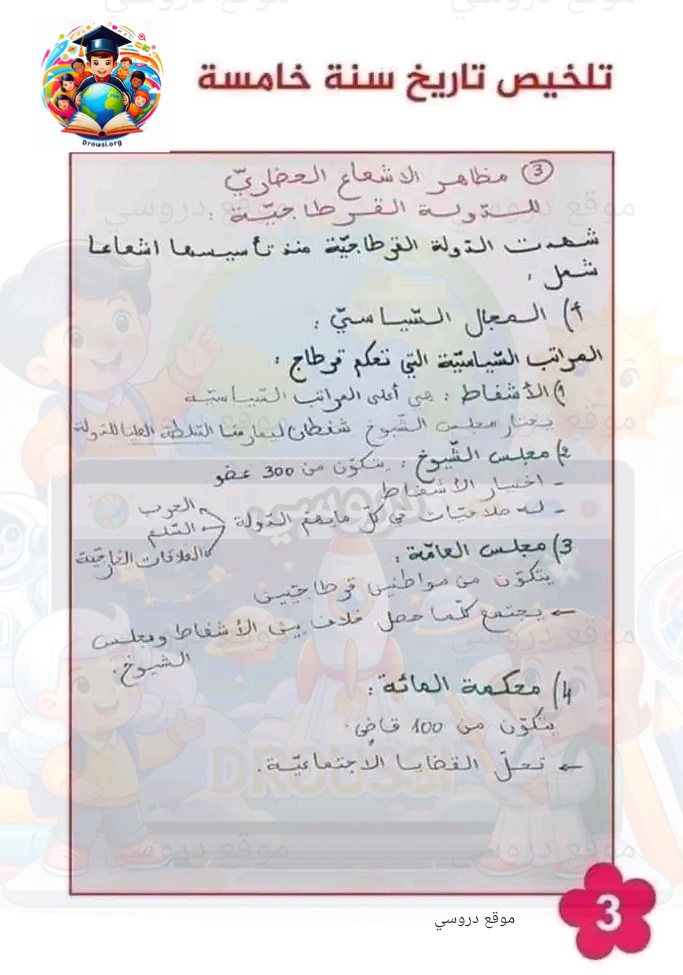 تلخيص تاريخ سنة خامسة
Drousi.org
3 مظاهر الاشعاع الحضاريّ
للدّولة القرطاجيّة :
شهدت الدّولة القرطاجيّة منذ تأسيسها اشعاعا
شمل :
أ) المجال السّياسيّ :
المراتب السّياسيّة التي تحكم قرطاج :
1) الأشفاط : هي أعلى المراتب السّياسيّة
يختار مجلس الشّيوخ شفطان ليمارسا السّلطة العليا للدّولة
2) مجلس الشّيوخ : يتكوّن من 300 عضو
- اختيار الأشفاط
- له صلاحيّات في كلّ ما يهم الدّولة
الحرب
السّلم
العلاقات الخارجيّة
3) مجلس العامّة :
يتكوّن من مواطنين قرطاجيّين
← يجتمع كلّما حصل خلاف بين الأشفاط ومجلس
الشيوخ.
4) محكمة المائة :
يتكوّن من 100 قاضٍ.
← تحلّ القضايا الاجتماعيّة.
دروسي
DROUSSI
موقع دروسي
3